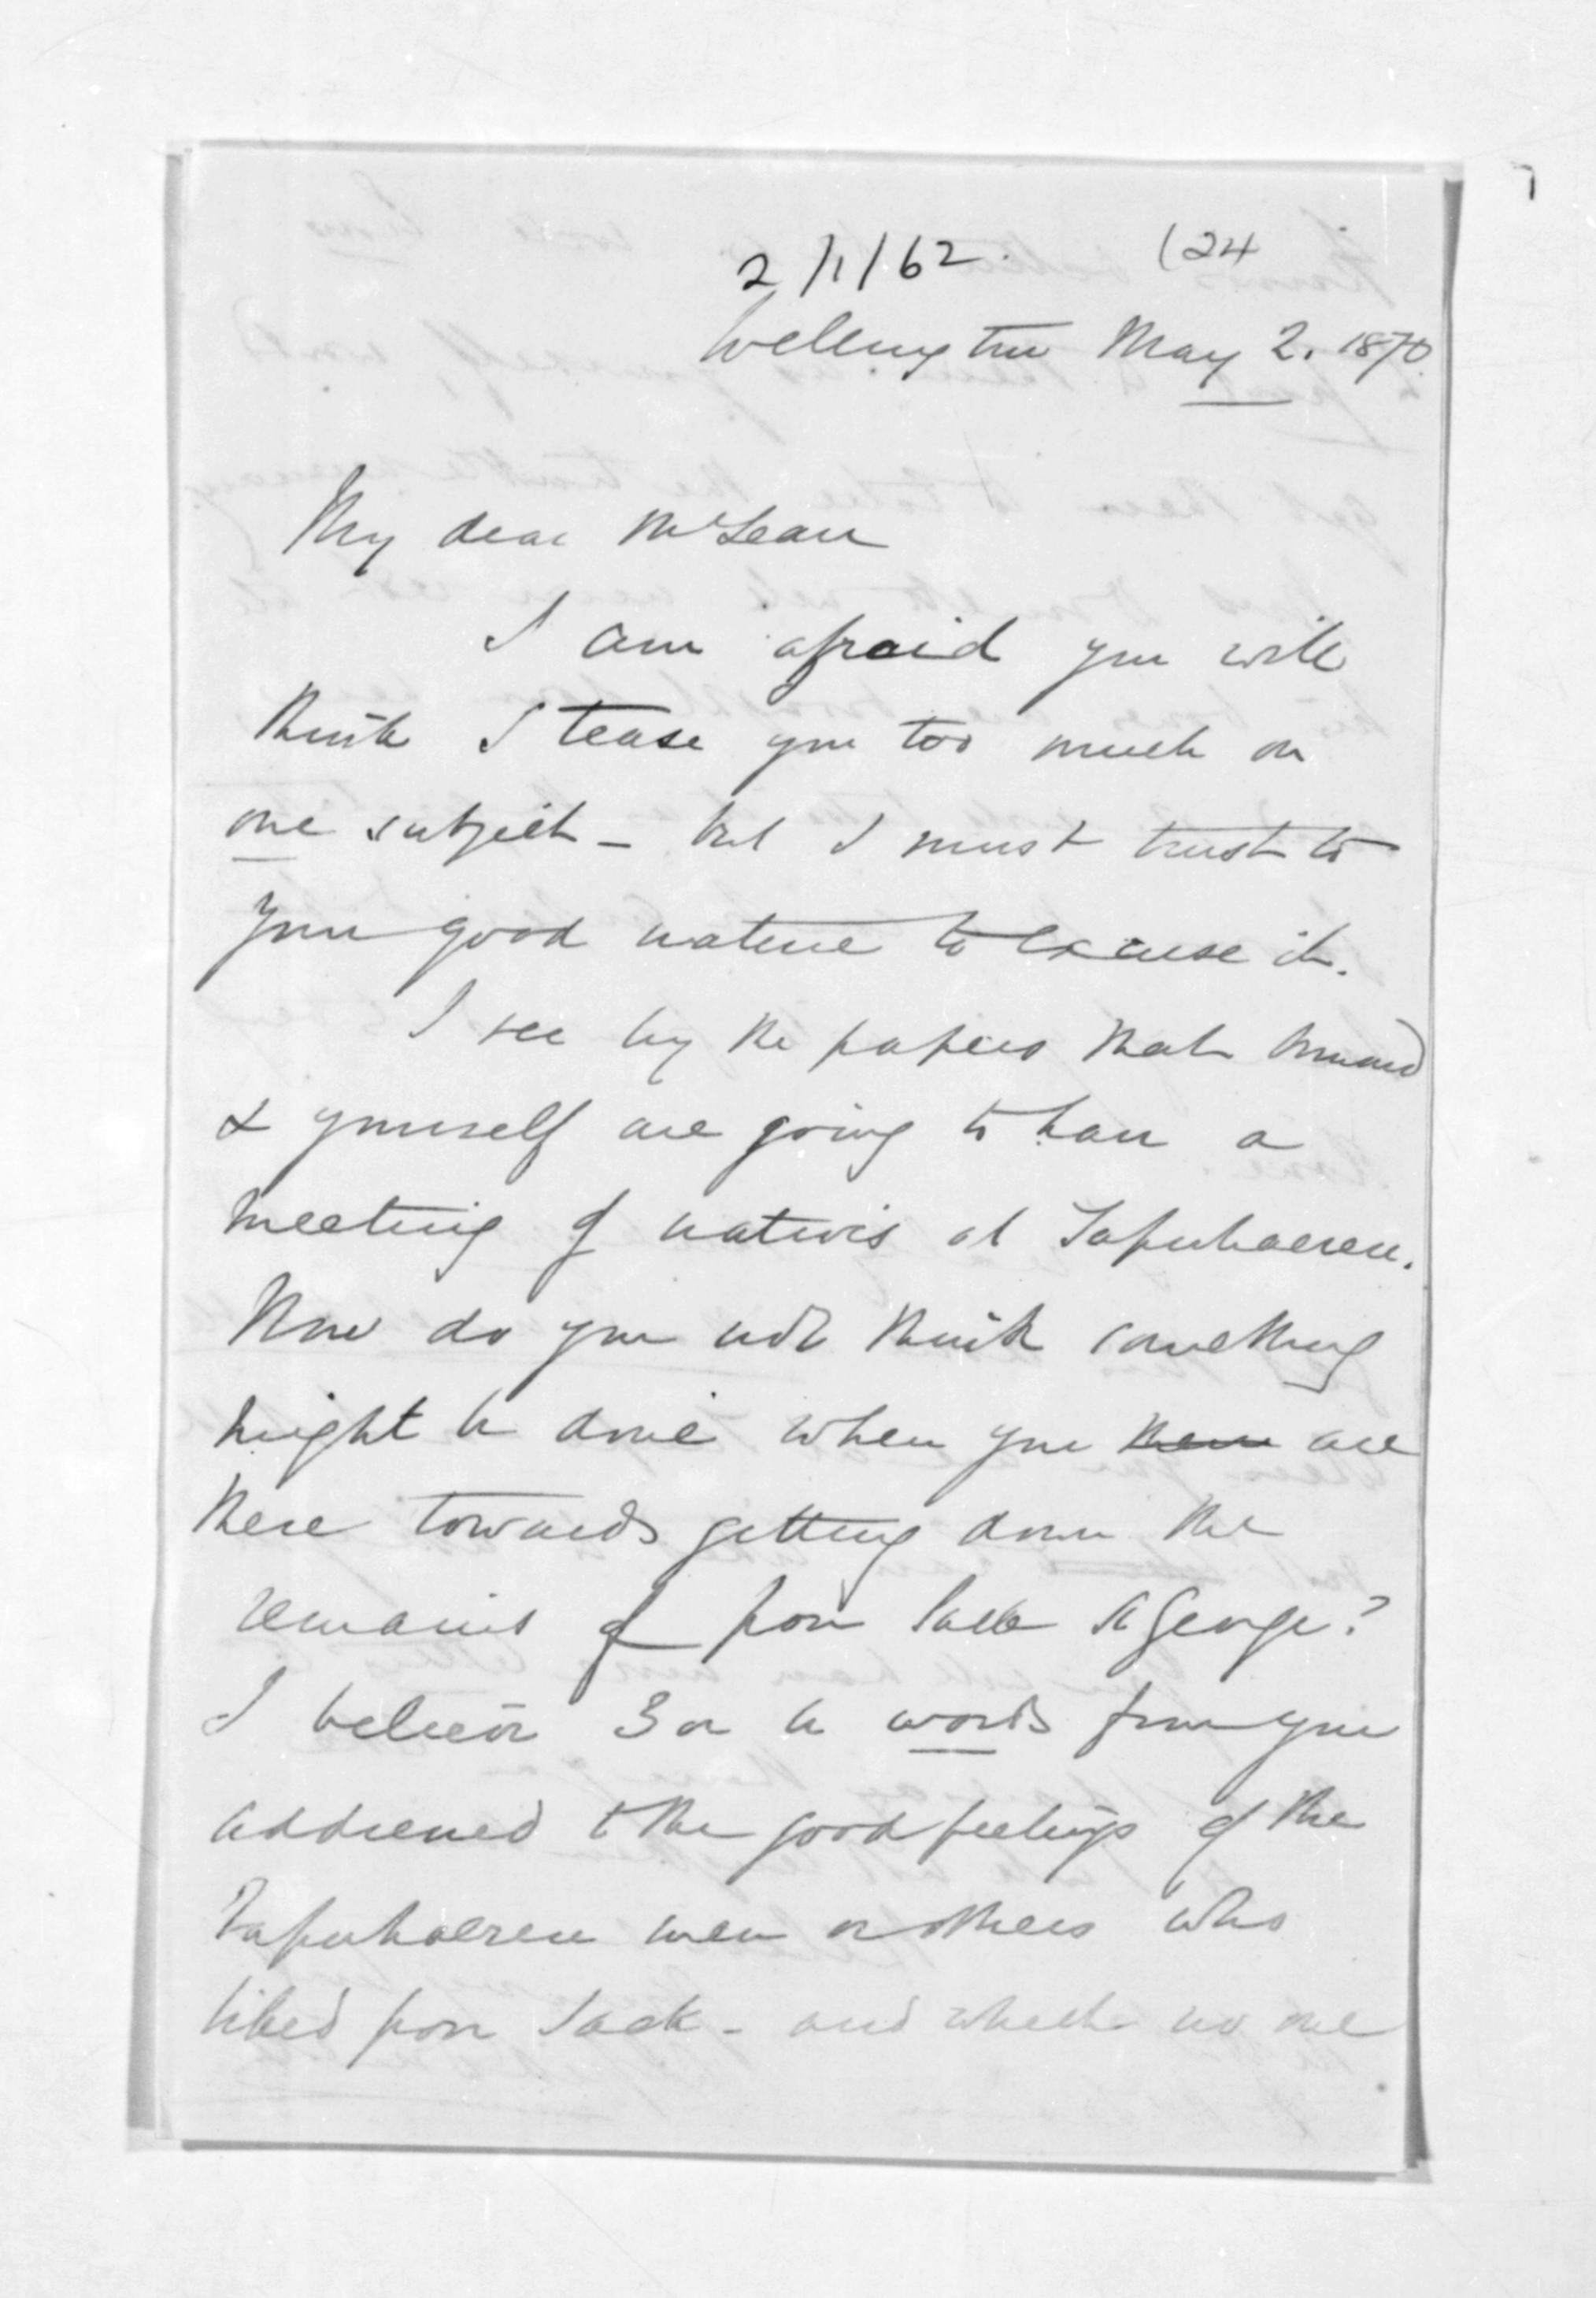 2/11/62. (24
7
Wellington May 2. 1870.
My dear McLean
I am afraid you will
think I tease you too much on
one subject - but I must trust to
your good nature to excuse it.
I see by the papers that Ormond
& yourself are going to have a
meeting of natives at Tapuhaeruru.
Now do you not think something
might be done when you them are
there towards getting down the
remains of poor Jack St George?
I believe 3 or 4 words from you
addressed to the good feelings of the
Tapuhaeruru men or others who
liked poor Jack - and which no one